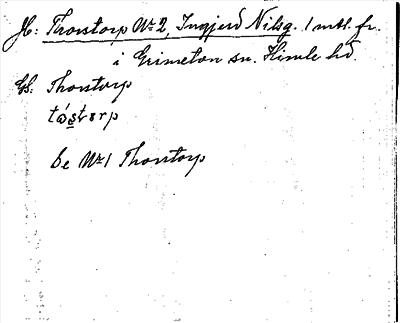 H: Thorstorp No 2, Ingjerd Nilsg. 1 mtl. fr.
i Grimeton sn. Himle hd.
Gs. Thorstorp
tåstɐrp
be No 1 Thorstorp